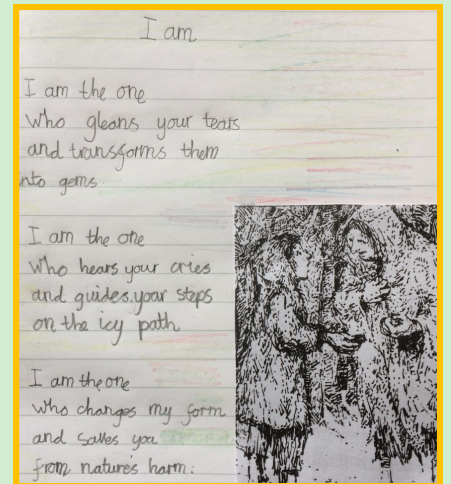 I am
I am the one
who gleans your tears
and transforms them
into gems
I am the one
who hears your cries
and guides your steps
on the icy path
I am the one
who changes my form
and saves you
from nature's harm.